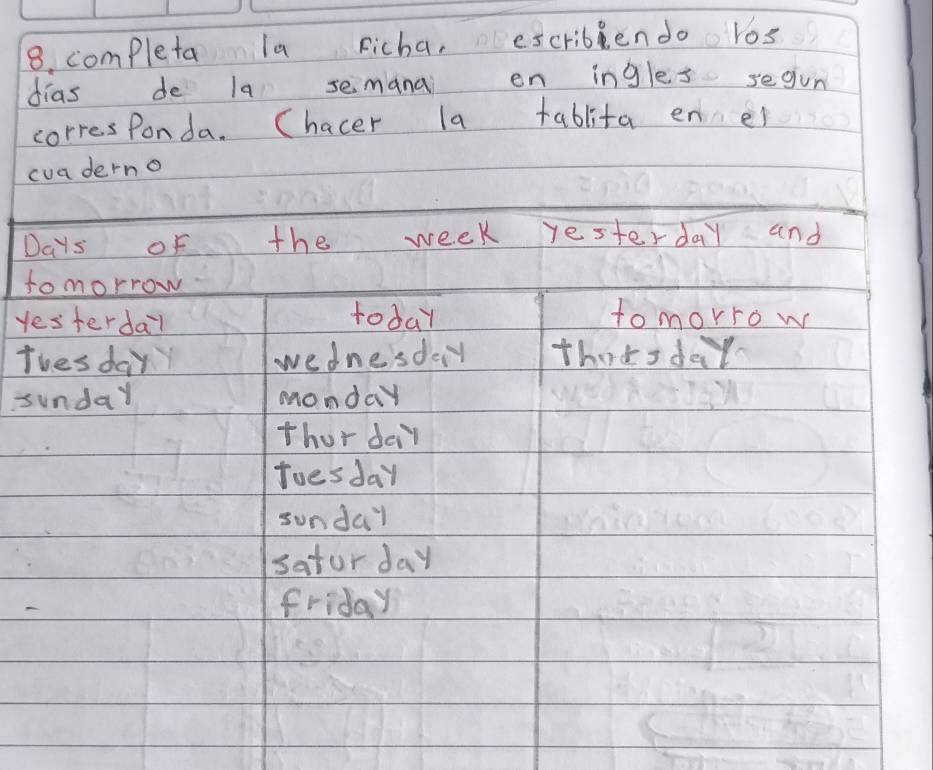 8. completa la Ficha, escribiendo los
días de la semana en ingles segun
corresponda. (hacer la tablita en el
cuaderno
Days OF the week yesterday and
tomorrow
yesterday today tomorrow
Tuesday wednesday thursday
sunday monday
thurday
Tuesday
sunday
saturday
friday